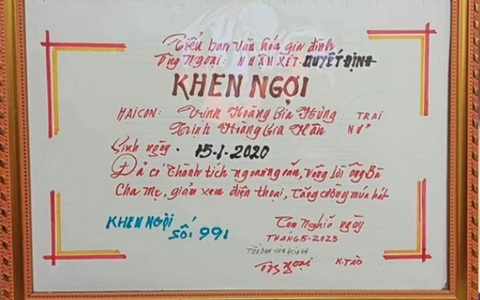 Tiểu ban văn hóa gia đình
Ông Ngoại: NHẬN XÉT QUYẾT ĐỊNH
KHEN NGỢI
HAI CON: Trịnh Hoàng Gia Hùng TRAI
Trịnh Hoàng Gia Hân NỮ
Tính ngày 15-1-2020
Đã có thành tích ngoan ngoãn, vâng lời Ông Bà
Cha Mẹ, giảm xem điện thoại, tăng động múa hát
KHEN NGỢI
SỐ: 991
Tam Nghĩa ngày
THANG 5-2023
TIỂU BAN VĂN HÓA GĐ
Ông Ngoại K.TÀO